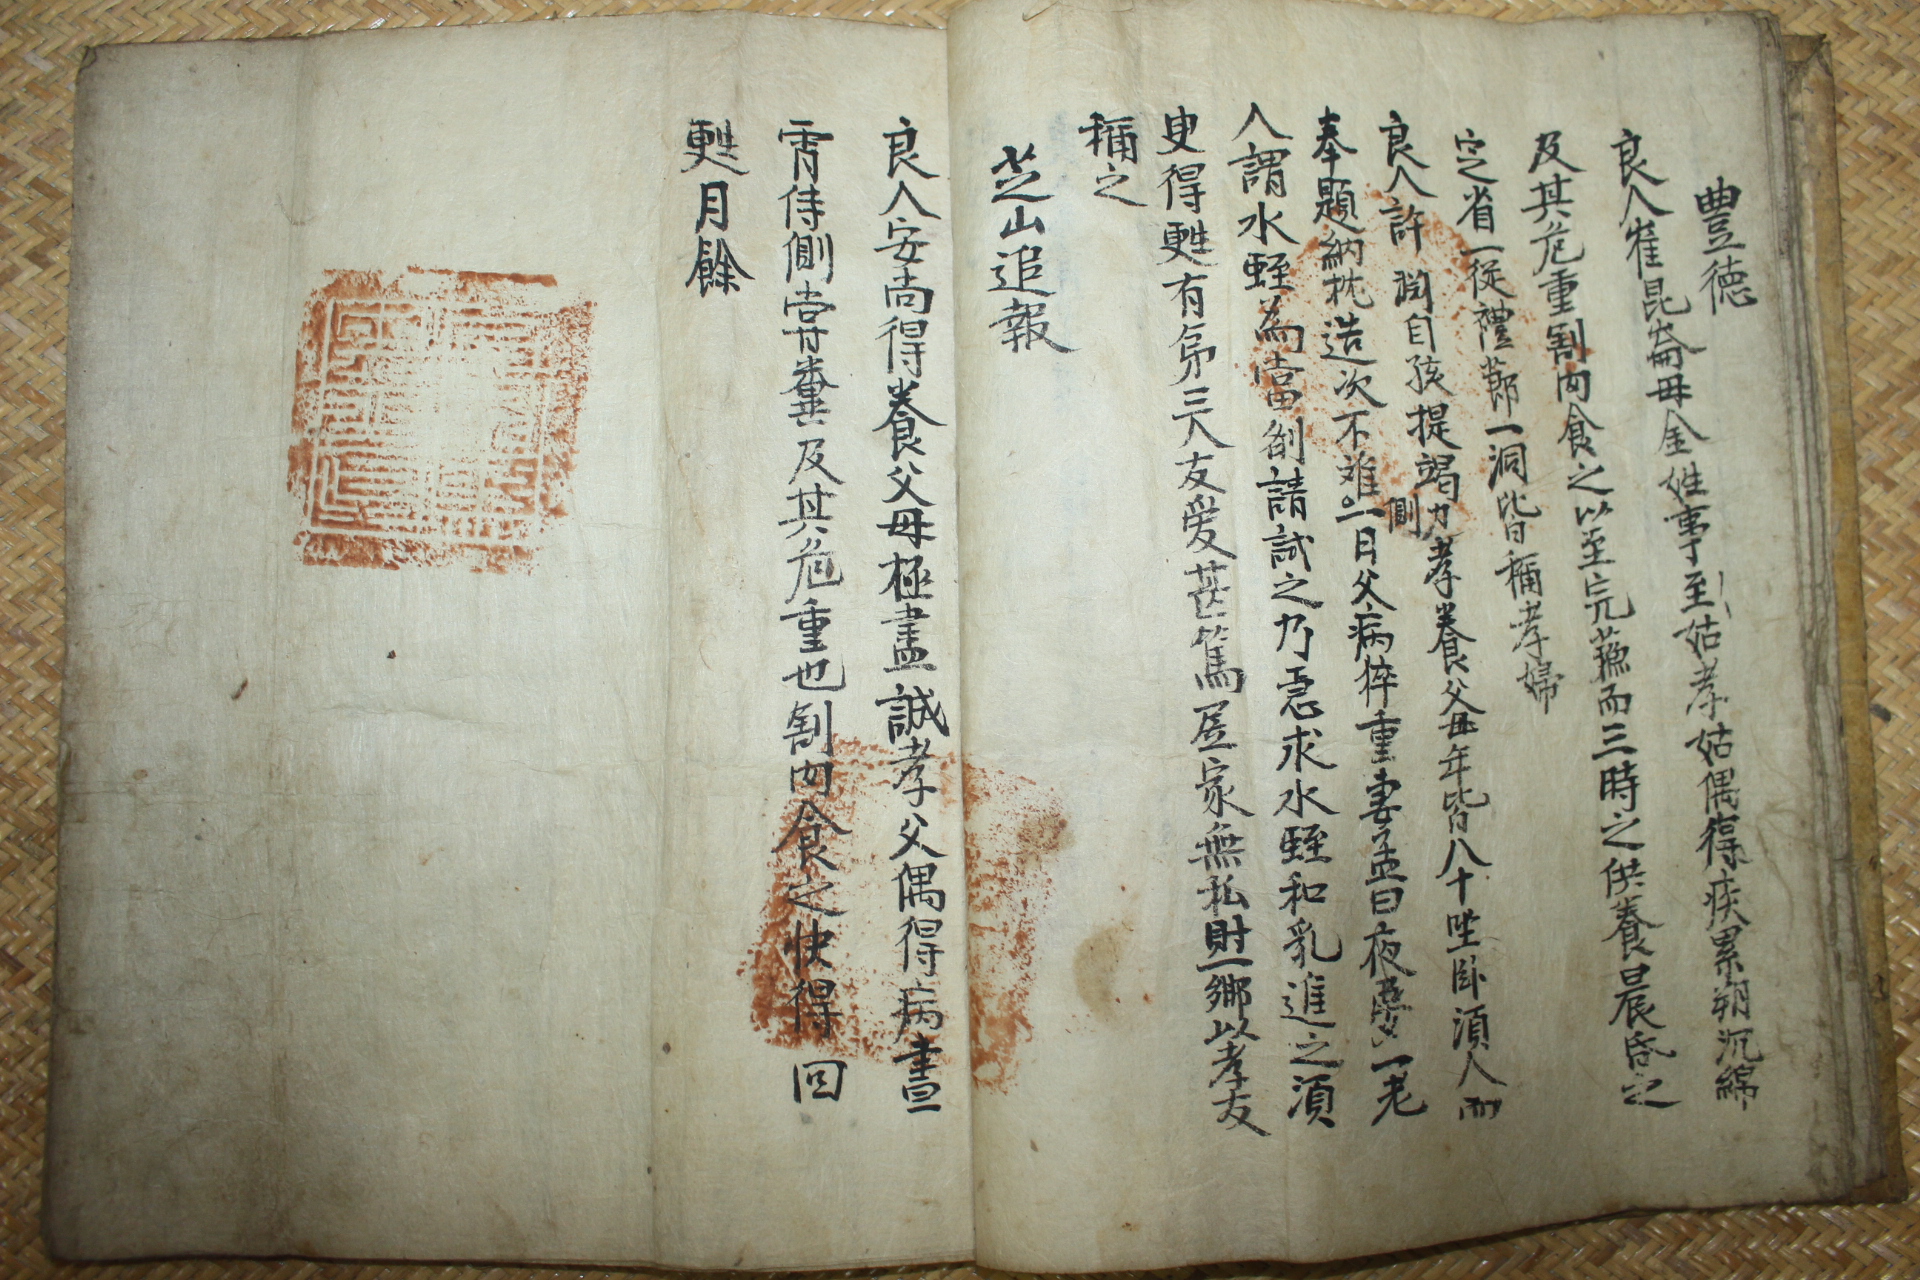 豊德
良人崔昆崙母金姓事至姑孝姑偶得疾累朔沉綿
及其危重割肉食之以至完蘓而三時之供養晨昏之
定省一從禮節一洞皆稱孝婦
良人許潤自孩提竭力孝養父母年皆八十坐卧湏人而
側
奉題納枕造次不难一日父病猝重妻孟曰夜夢一老
人謂水蛭為當劑請試之乃急求水蛭和乳進之湏
臾得甦有弟三人友爱甚篤居家無私財一鄉以孝友
稱之
芝山追報
良人安尚得養父母極盡誠孝父偶得病晝
宵侍側甞糞及其危重也割肉食之快得回
甦月餘